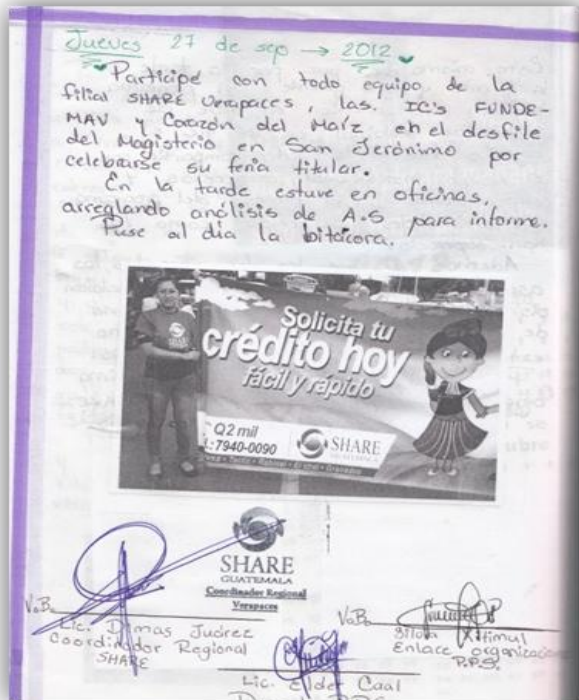 Jueves 27 de sep → 2012
Participé con todo equipo de la
filial SHARE Verapaces, las IC's FUNDE-
MAV y Corazón del Maíz en el desfile
del Magisterio en San Jerónimo por
celebrarse su feria titular.
En la tarde estuve en oficinas,
arreglando análisis de A.S para informe.
Puse al día la bitácora.
Solicita tu
crédito hoy
fácil y rápido
Q2 mil
:7940-0090
SHARE
GUATEMALA
Rabinal • El Chol • Granados
SHARE
GUATEMALA
Coordinador Regional
Verapaces
VoBo
Lic. Dimas Juárez
Coordinador Regional
SHARE
VoBo
Xitimul
Enlace organizacion
P.P.S.
Lic. Elder Caal